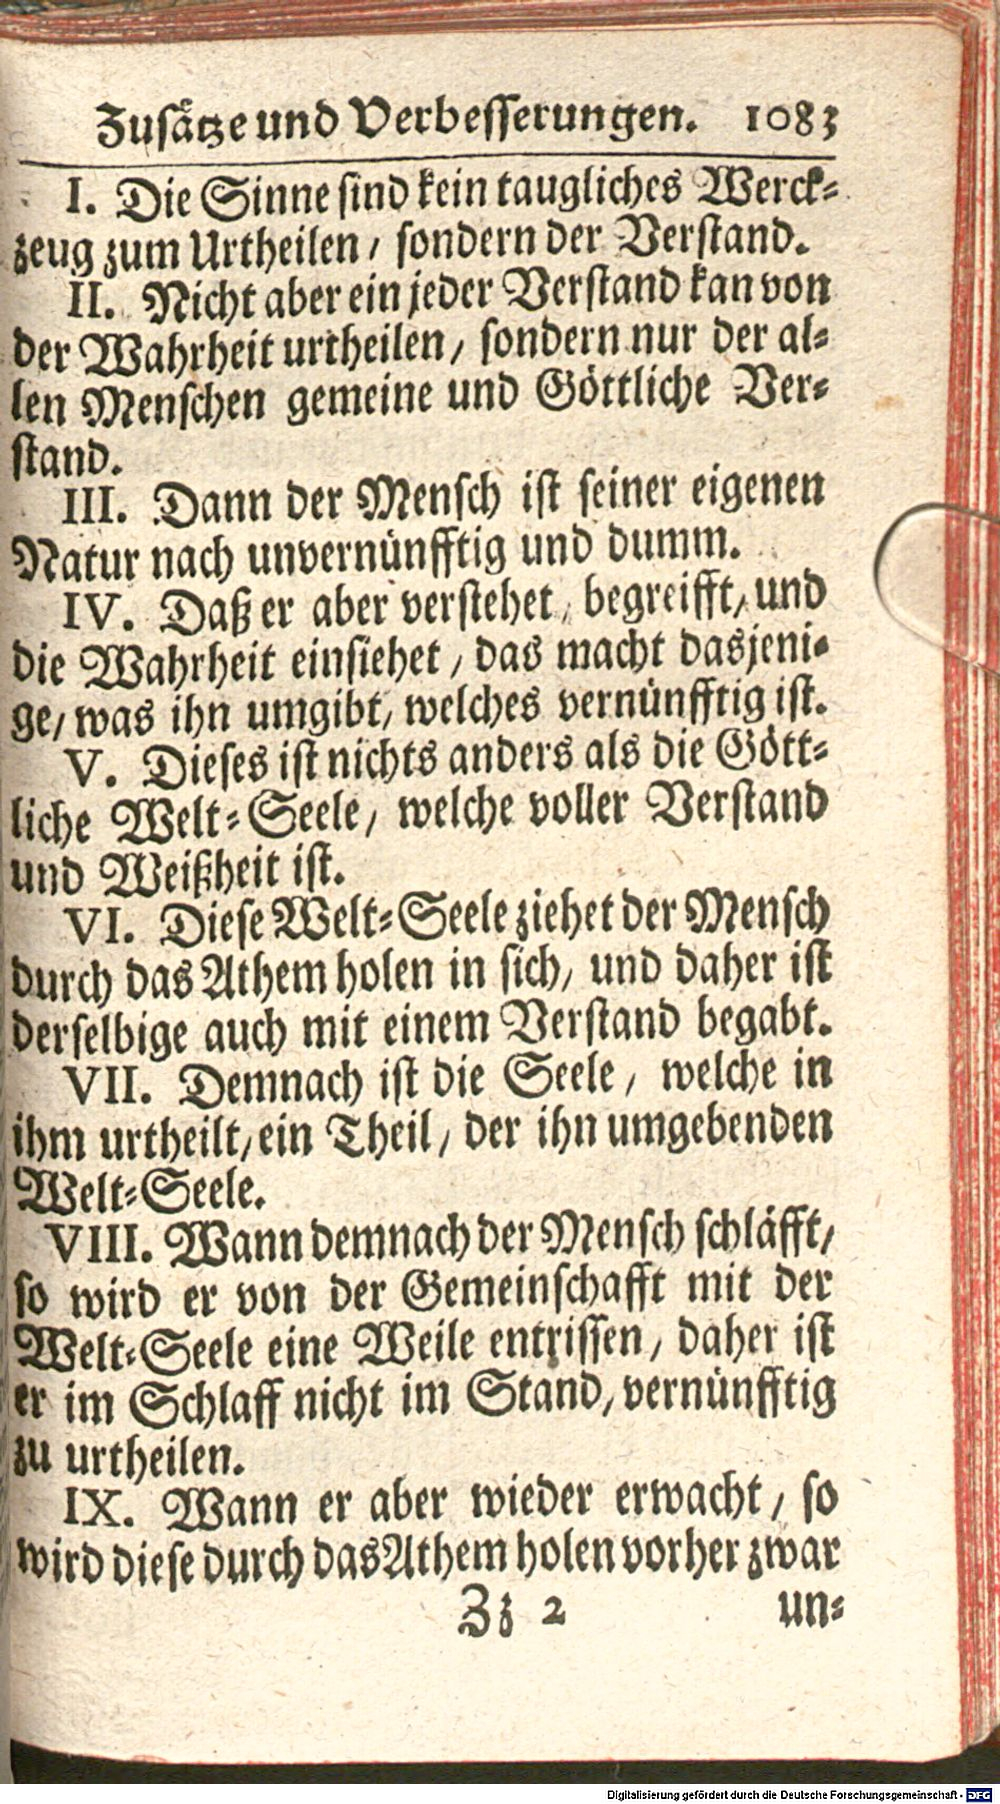 Zusätze und Verbesserungen. 1083
I. Die Sinne sind kein taugliches Werck-
zeug zum Urtheilen / sondern der Verstand.
II. Nicht aber ein jeder Verstand kan von
der Wahrheit urtheilen / sondern nur der al-
len Menschen gemeine und Göttliche Ver-
stand.
III. Dann der Mensch ist seiner eigenen
Natur nach unvernünfftig und dumm.
IV. Daß er aber verstehet, begreifft, und
die Wahrheit einsiehet / das macht dasjeni-
ge / was ihn umgibt, welches vernünfftig ist.
V. Dieses ist nichts anders als die Gött-
liche Welt-Seele / welche voller Verstand
und Weißheit ist.
VI. Diese Welt-Seele ziehet der Mensch
durch das Athem holen in sich / und daher ist
derselbige auch mit einem Verstand begabt.
VII. Demnach ist die Seele / welche in
ihm urtheilt / ein Theil / der ihn umgebenden
Welt-Seele.
VIII. Wann demnach der Mensch schläfft /
so wird er von der Gemeinschafft mit der
Welt-Seele eine Weile entrissen / daher ist
er im Schlaff nicht im Stand / vernünfftig
zu urtheilen.
IX. Wann er aber wieder erwacht / so
wird diese durch das Athem holen vorher zwar
Zz 2 un-
Digitalisierung gefördert durch die Deutsche Forschungsgemeinschaft - DFG